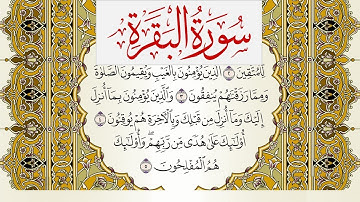 سُورَةُ الْبَقَرَةِ
لِلْمُتَّقِينَ ۝٢ الَّذِينَ يُؤْمِنُونَ بِالْغَيْبِ وَيُقِيمُونَ الصَّلَاةَ
وَمِمَّا رَزَقْنَاهُمْ يُنفِقُونَ ۝٣ وَالَّذِينَ يُؤْمِنُونَ بِمَا أُنزِلَ
إِلَيْكَ وَمَا أُنزِلَ مِن قَبْلِكَ وَبِالْآخِرَةِ هُمْ يُوقِنُونَ ۝٤
أُولَٰئِكَ عَلَىٰ هُدًى مِّن رَّبِّهِمْ ۖ وَأُولَٰئِكَ
هُمُ الْمُفْلِحُونَ ۝٥